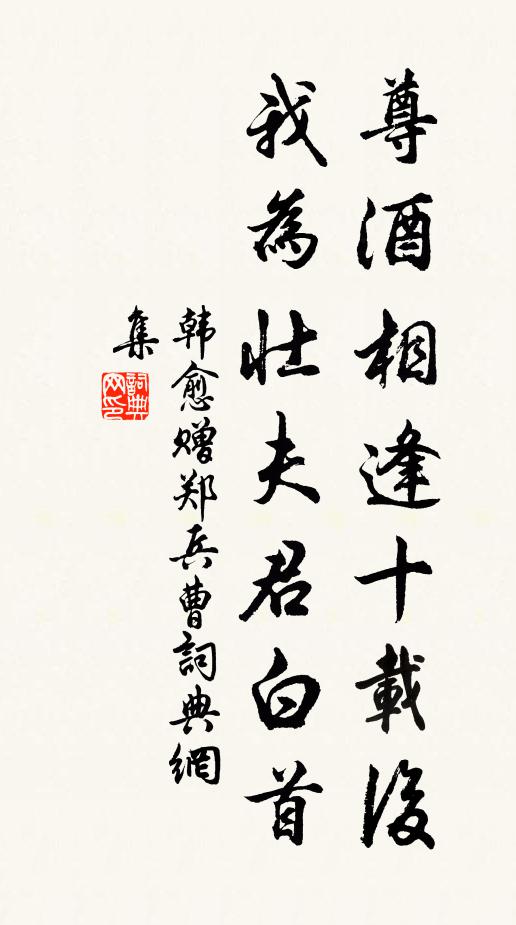 尊酒相逢十載後
我為壯夫君白首
韩愈赠郑兵曹詞典網
集
詞典网印